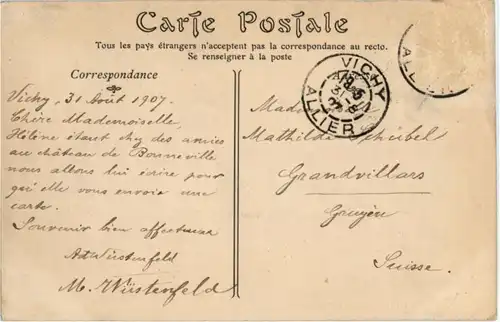 Carte Postale
Tous les pays étrangers n'acceptent pas la correspondance au recto.
Se renseigner à la poste
Correspondance
Vichy, 31 Août 1907.
Chère Mademoiselle,
Hélène étant chez des amies
au château de Bonneville
nous allons lui écrire pour
qu'elle vous envoie une
carte.
Souvenir bien affectueux
AdWüstenfeld
M. Wüstenfeld
VICHY
ALLIER
ALLIER
Mathilde
Grandvillars
Gruyère
Suisse.